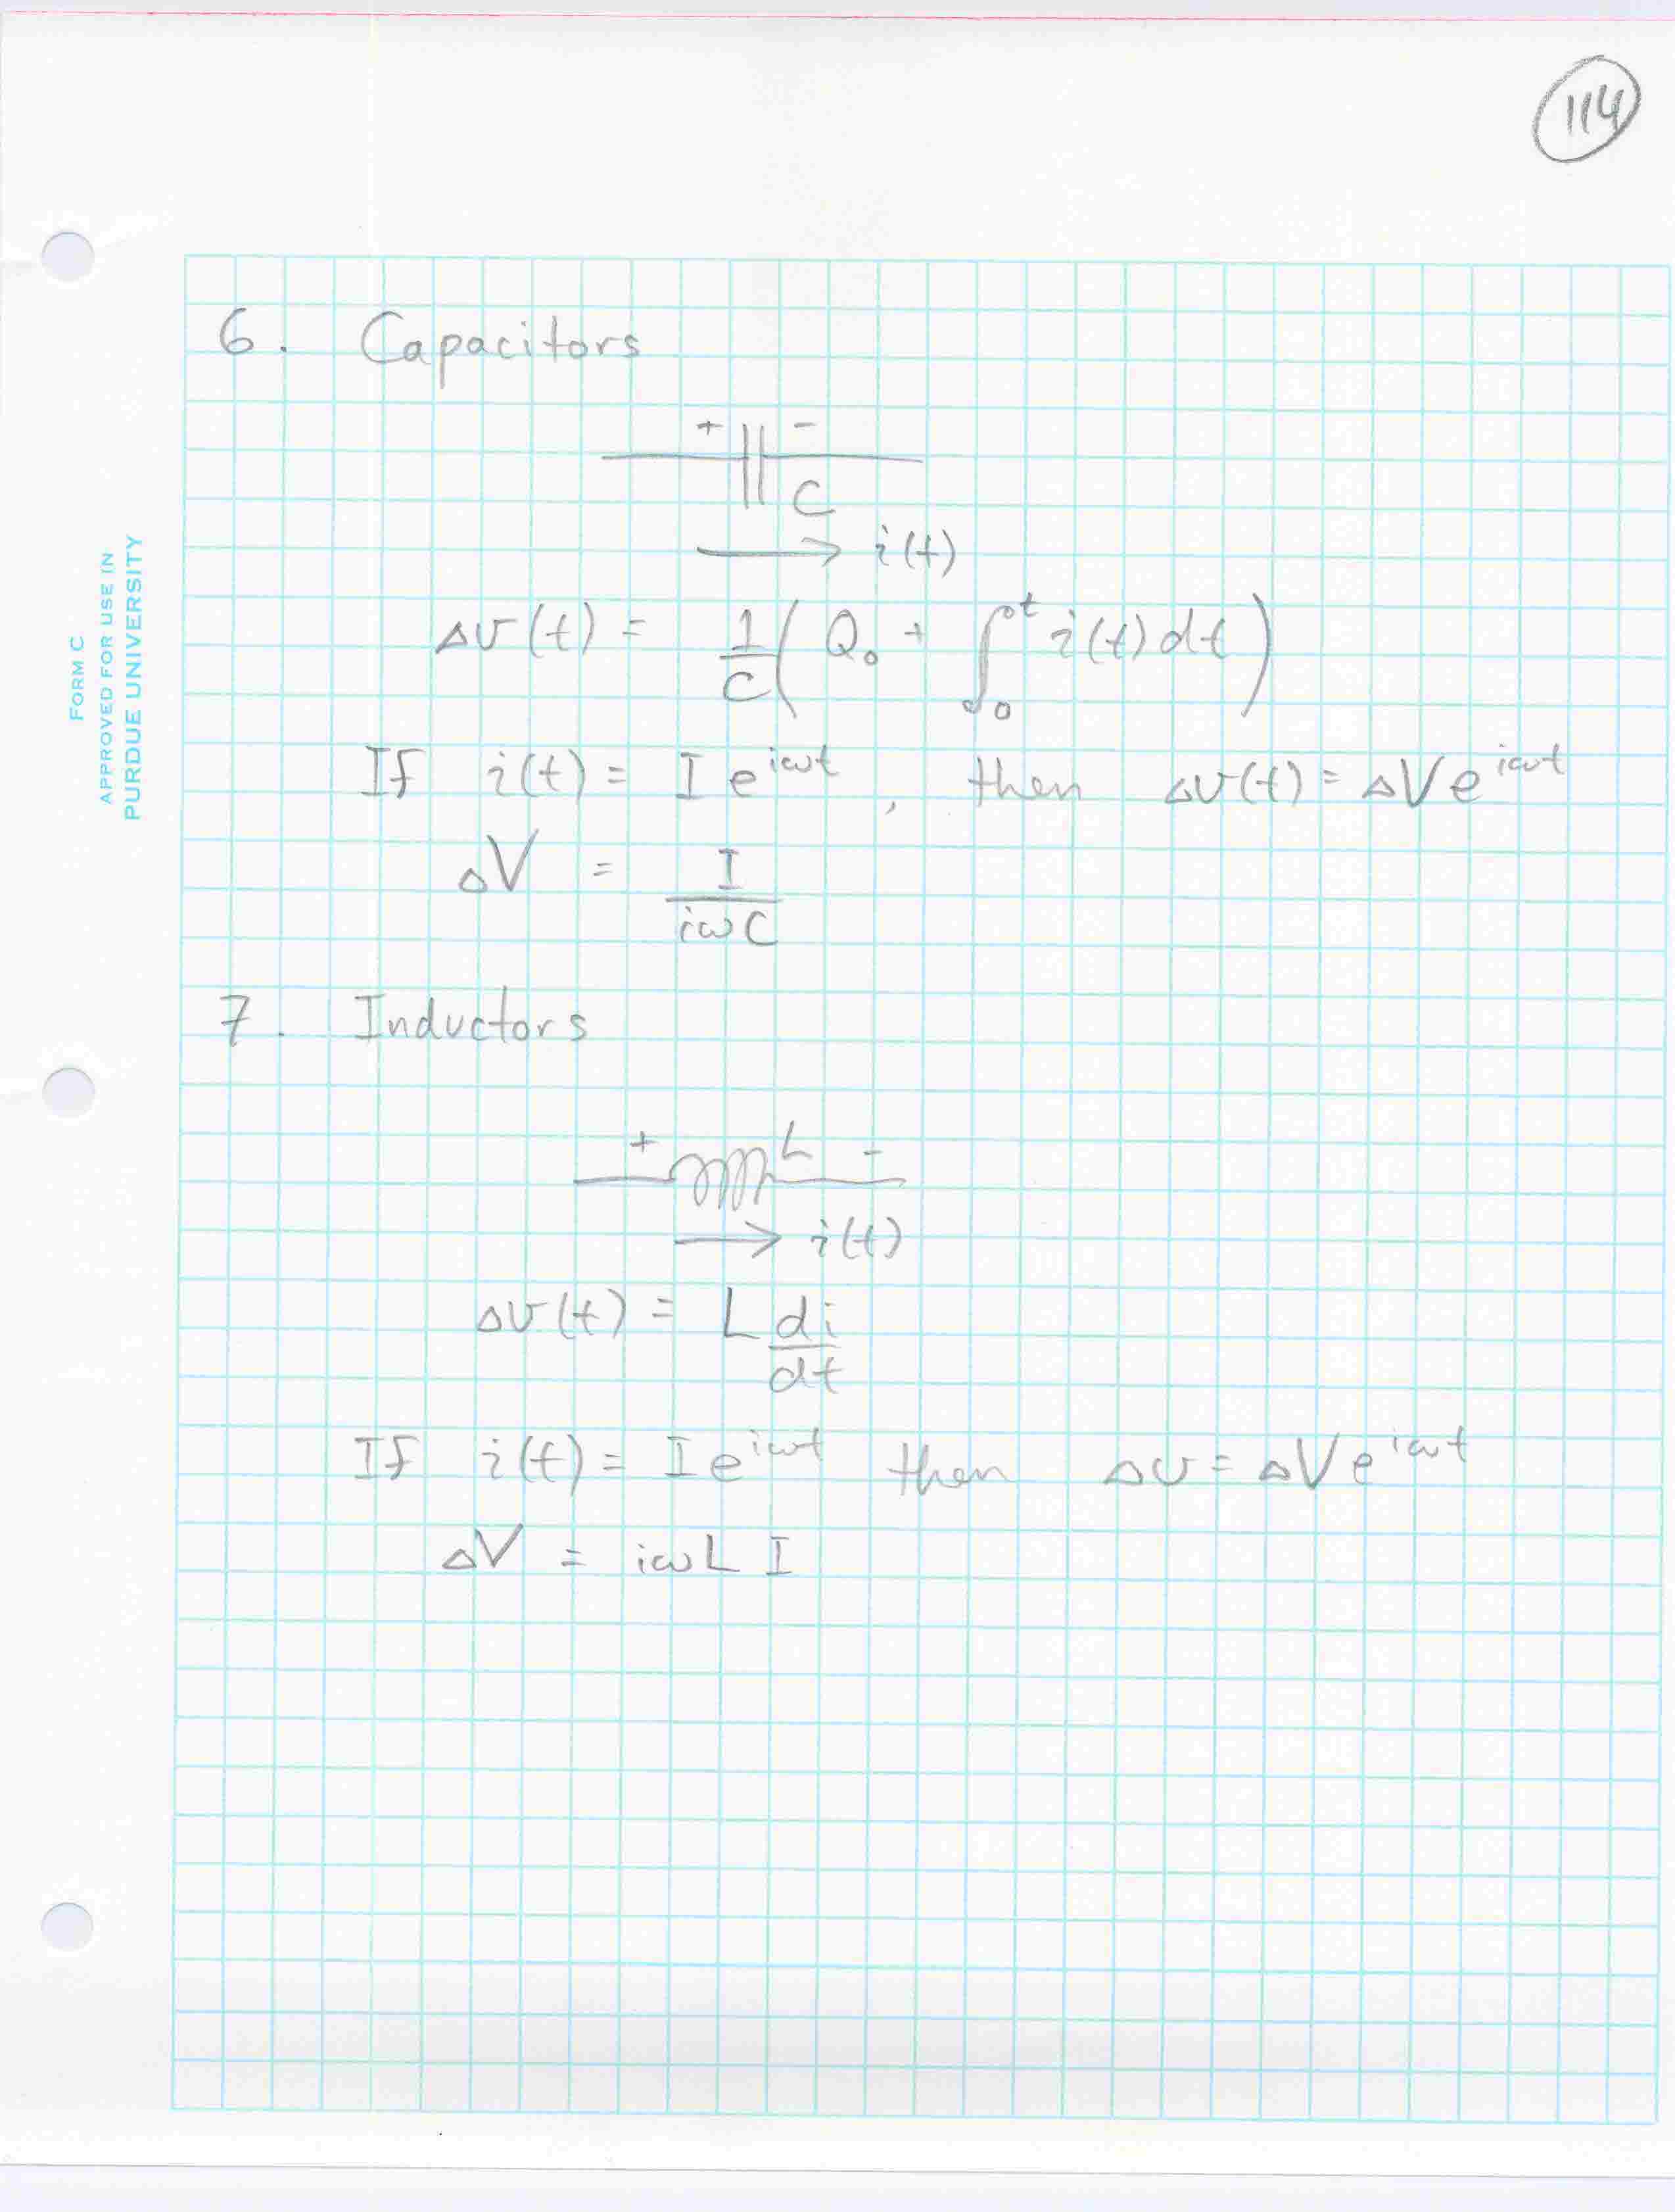 114
FORM C
APPROVED FOR USE IN
PURDUE UNIVERSITY
6. Capacitors
+ -
C
i(t)
Δv(t) = 1/C ( Q₀ + ∫₀ᵗ i(t) dt )
If i(t) = I e^{iωt}, then Δv(t) = ΔV e^{iωt}
ΔV = I / iωC
7. Inductors
+ L -
i(t)
Δv(t) = L di/dt
If i(t) = I e^{iωt} then Δv = ΔV e^{iωt}
ΔV = iωL I